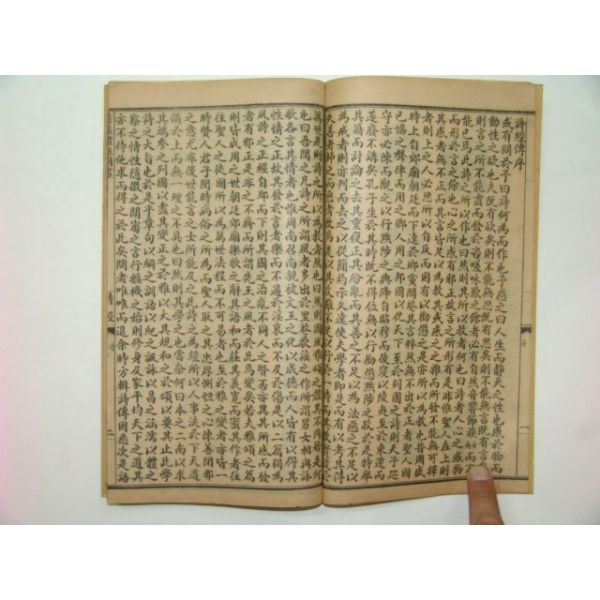 詩經傳序
或有問於予曰詩何為而作也予應之曰人生而靜天之性也感於物而
動性之欲也夫既有欲矣則不能無思既有思矣則不能無言既有言
則言之所不能盡而發於咨嗟咏歎之餘者必有自然音響節族而不
能已焉此詩之所以作也曰然則其所以教者何也曰詩者人心之感物
而形於言之餘也心之所感有邪正故言之所形有是非惟聖人在上則
其所感者無不正而其言皆足以為教其或感之之雜而所發不能無可擇
者則上之人必思所以自反而因有以勸懲之是亦所以為教也昔周盛
時上自郊廟朝廷而下達於鄉黨閭巷其言粹然無不出於正者聖人固
已協之聲律而用之鄉人用之邦國以化天下至於列國之詩則天子巡
守亦必陳而觀之以行黜陟之典降自昭穆而後寖以陵夷至於東遷而
遂廢不講矣孔子生於其時既不得位無以行勸懲黜陟之政於是特舉
其籍而討論之去其重復正其紛亂而其善之不足以為法惡之不足以
為戒者則亦刊而去之以從簡約示久遠使夫學者即是而有以考其得
失善者師之而惡者改焉是以其政雖不足以行於一時而其教實被於
萬世是則詩之所以為教者然也曰然則國風雅頌之體其不同若是何
也曰吾聞之凡詩之所謂風者多出於里巷歌謠之作所謂男女相與詠
歌各言其情者也惟周南召南親被文王之化以成德而人皆有以得其
性情之正故其發於言者樂而不過於淫哀而不及於傷是以二篇獨為
風詩之正經自邶而下則其國之治亂不同人之賢否亦異其所感而發
者有邪正是非之不齊而所謂先王之風者於此焉變矣若夫雅頌之篇
則皆成周之世朝廷郊廟樂歌之詞其語和而莊其義寬而密其作者往
往聖人之徒固所以為萬世法程而不可易者也至於雅之變者亦皆一
時賢人君子閔時病俗之所為而聖人取之其忠厚惻怛之心陳善閉邪
之意尤非後世能言之士所能及之此詩之為經所以人事浹於下天道
備於上而無一理之不具也曰然則其學之也當奈何曰本之二南以求
其端參之列國以盡其變正之於雅以大其規和之於頌以要其止此學
詩之大旨也於是乎章句以綱之訓詁以紀之諷詠以昌之涵濡以體之
察之情性隱微之間審之言行樞機之始則修身及家平均天下之道其
亦不待他求而得之於此矣問者唯唯而退余時方輯詩傳因悉次是語
詩經 序 二